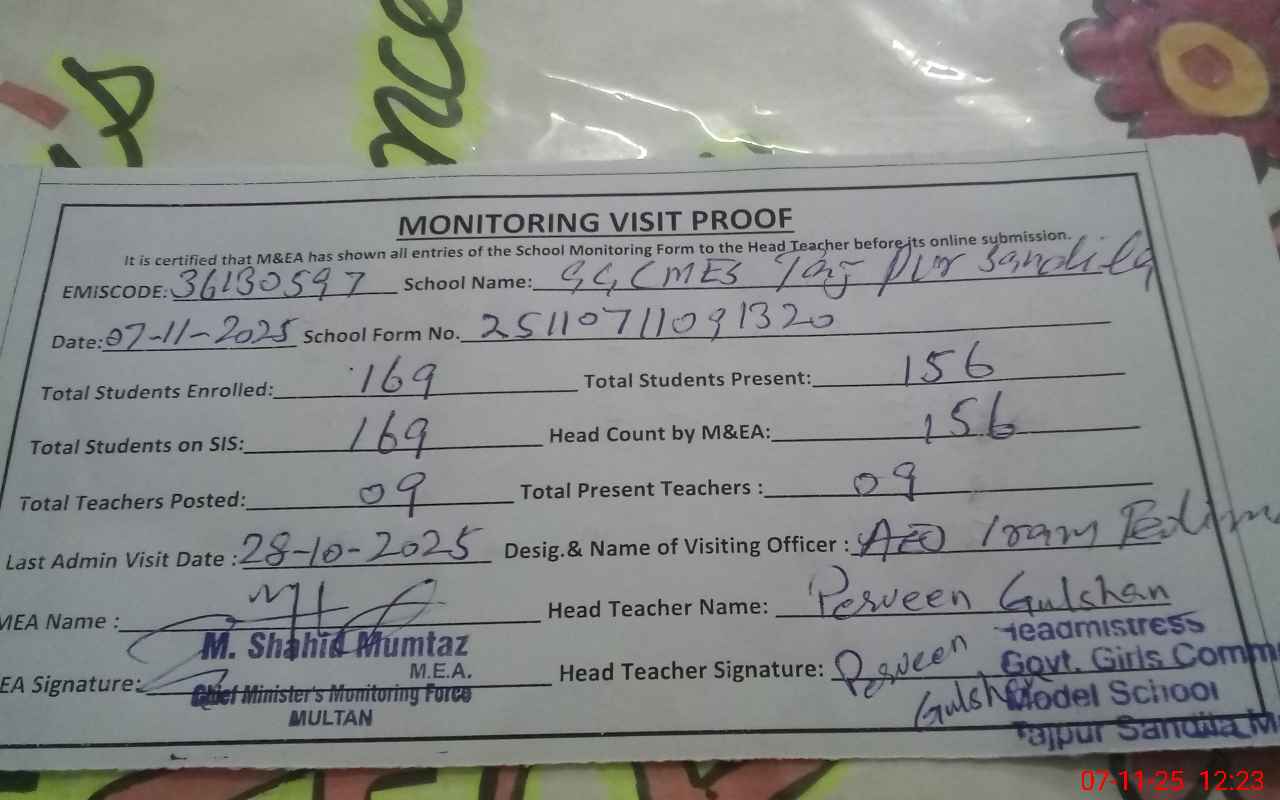 nce
MONITORING VISIT PROOF
It is certified that M&EA has shown all entries of the School Monitoring Form to the Head Teacher before its online submission.
EMISCODE: 36130597 School Name: GGCMES Taj pur Sandila
Date: 07-11-2025 School Form No. 25110711091320
Total Students Enrolled: 169 Total Students Present: 156
Total Students on SIS: 169 Head Count by M&EA: 156
Total Teachers Posted: 09 Total Present Teachers : 09
Last Admin Visit Date : 28-10-2025 Desig.& Name of Visiting Officer : AEO Iram
MEA Name : Head Teacher Name: Perveen Gulshan
M. Shahid Mumtaz
M.E.A.
Chief Minister's Monitoring Force
MULTAN
EA Signature: Head Teacher Signature: Perveen Gulshan
Headmistress
Govt. Girls Comm
Model School
Tajpur Sandila M
07-11-25 12:23